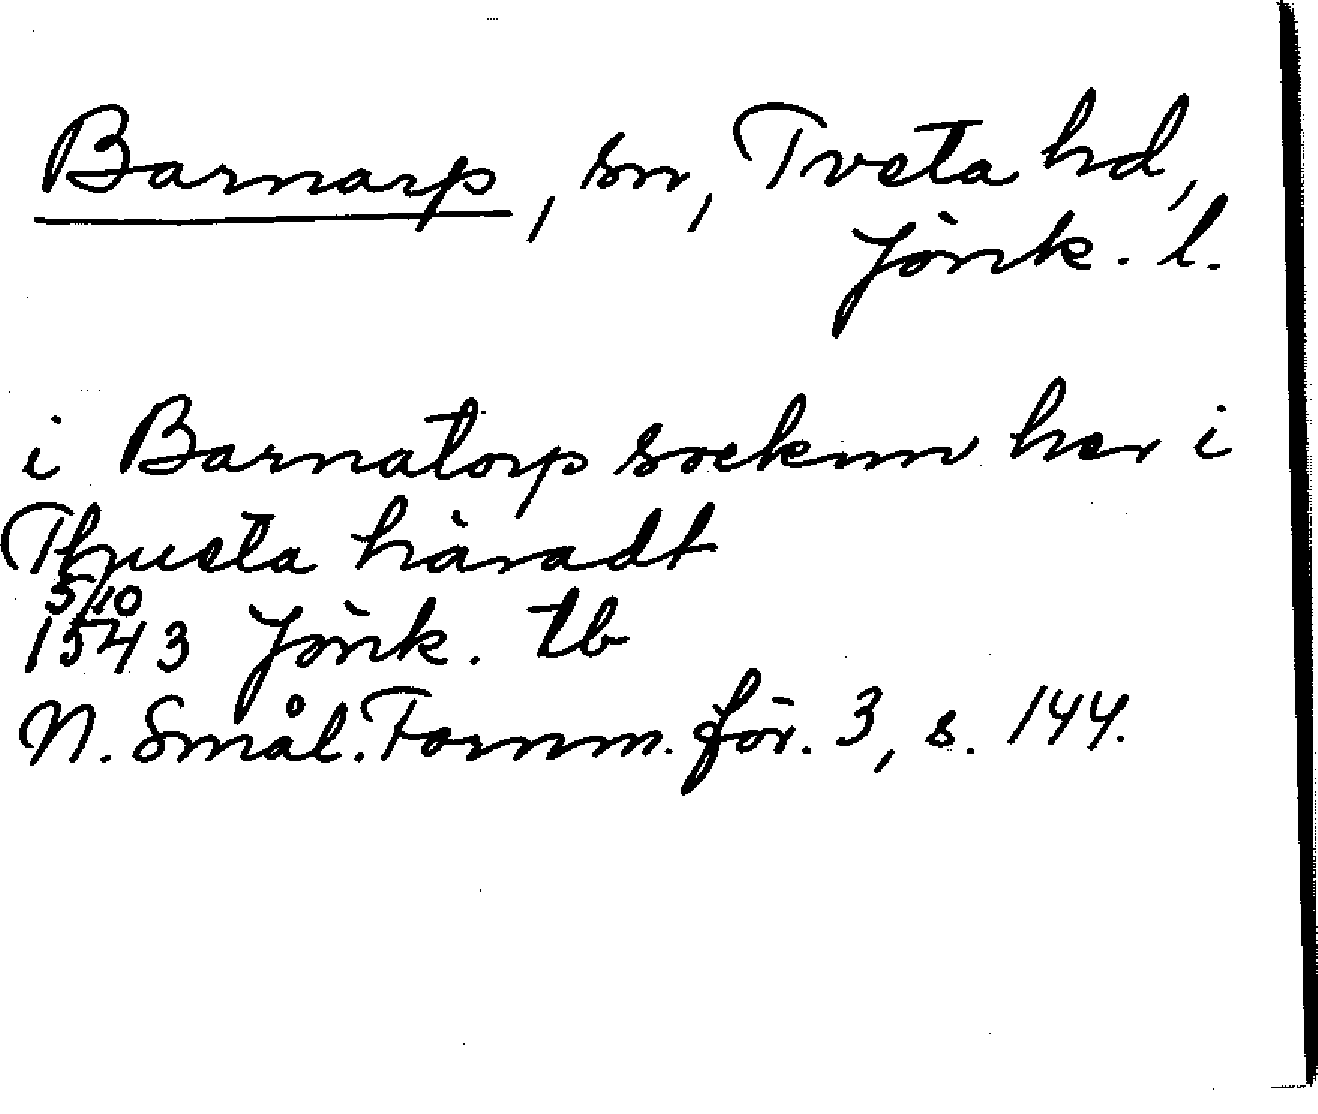 Barnarp, sn, Tveta hd,
Jönk. l.
i Barnatorp socknn her i
Thusta häradt
5/10
1543 Jönk. tb
N. Smål. Fornm. för. 3, s. 144.